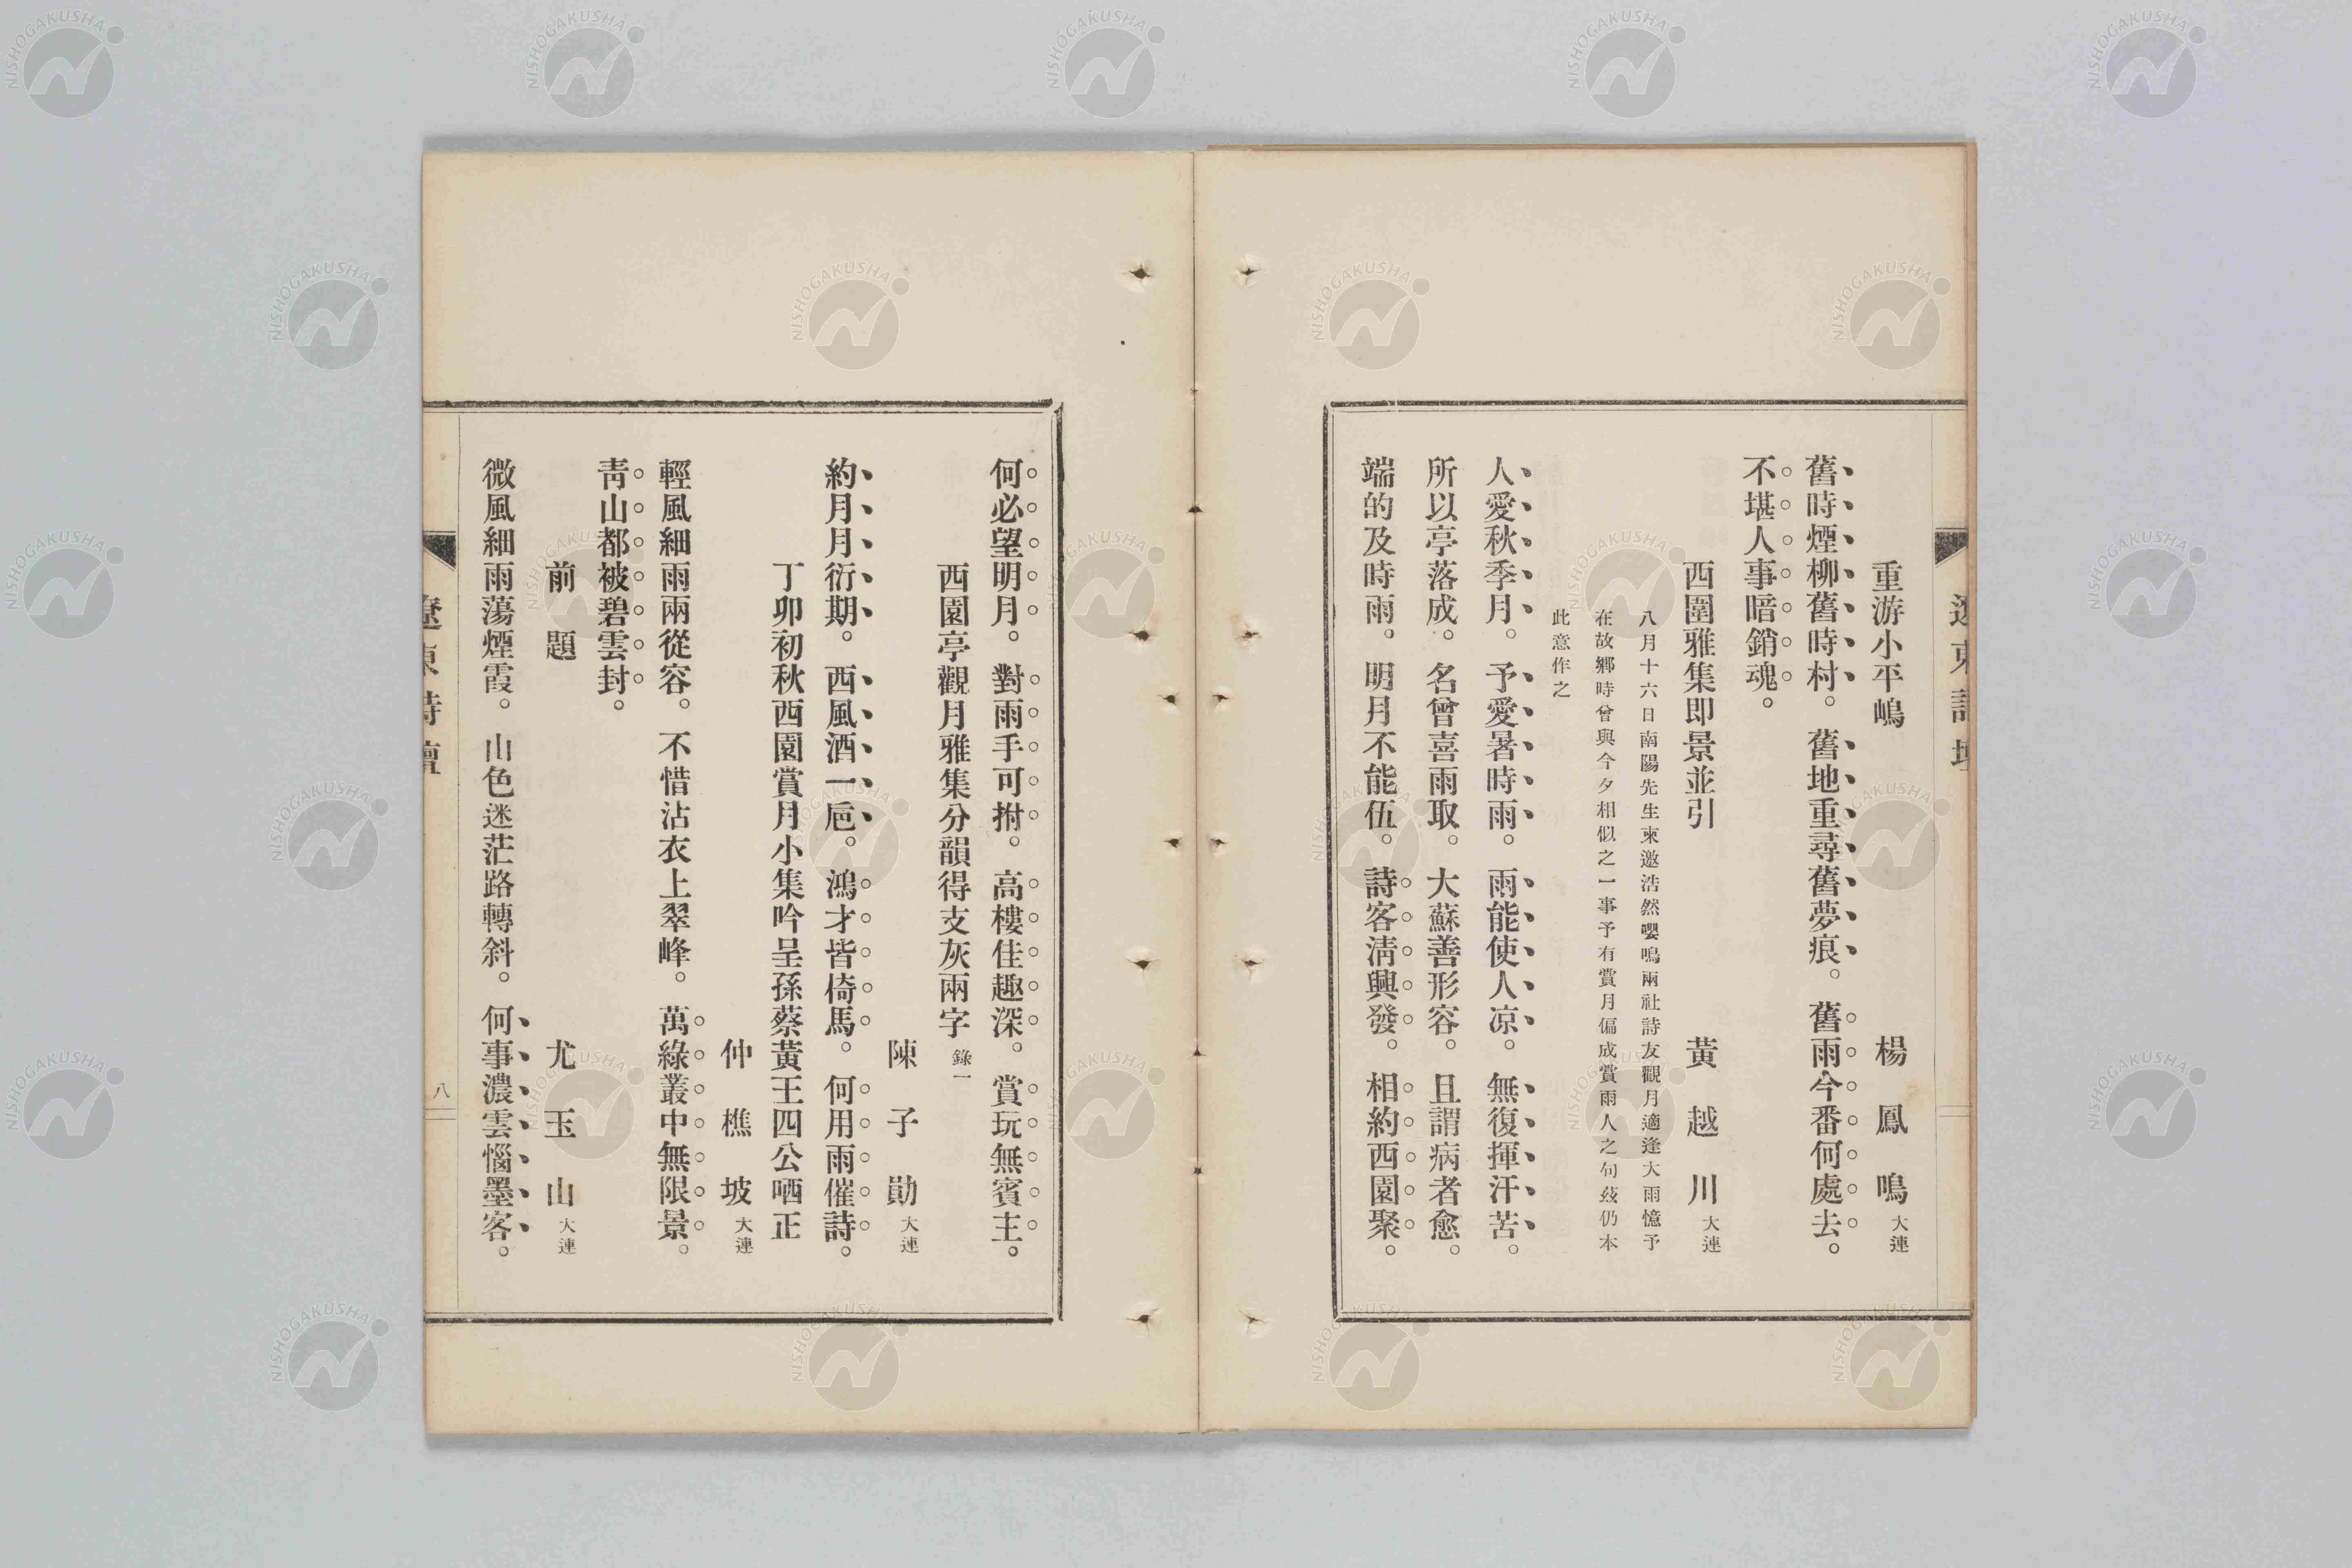 重游小平嶋　楊鳳鳴 大連
舊時煙柳舊時村。舊地重尋舊夢痕。舊雨今番何處去。
不堪人事暗銷魂。
西園雅集即景並引　黃越川 大連
八月十六日南陽先生柬邀浩然嚶鳴兩社詩友觀月適逢大雨憶予
在故鄉時曾與今夕相似之一事予有賞月偏成賞雨人之句茲仍本
此意作之
人愛秋季月。予愛暑時雨。雨能使人凉。無復揮汗苦。
所以亭落成。名曾喜雨取。大蘇善形容。且謂病者愈。
端的及時雨。明月不能伍。詩客淸興發。相約西園聚。
何必望明月。對雨手可拊。高樓佳趣深。賞玩無賓主。
西園亭觀月雅集分韻得支灰兩字 錄一
陳子勛 大連
約月月衍期。西風酒一巵。鴻才皆倚馬。何用雨催詩。
丁卯初秋西園賞月小集吟呈孫蔡黃王四公哂正
仲樵坡 大連
輕風細雨兩從容。不惜沾衣上翠峰。萬綠叢中無限景。
靑山都被碧雲封。
前題　尤玉山 大連
微風細雨蕩煙霞。山色迷茫路轉斜。何事濃雲惱墨客。
遼東詩壇
八
NISHOGAKUSHA